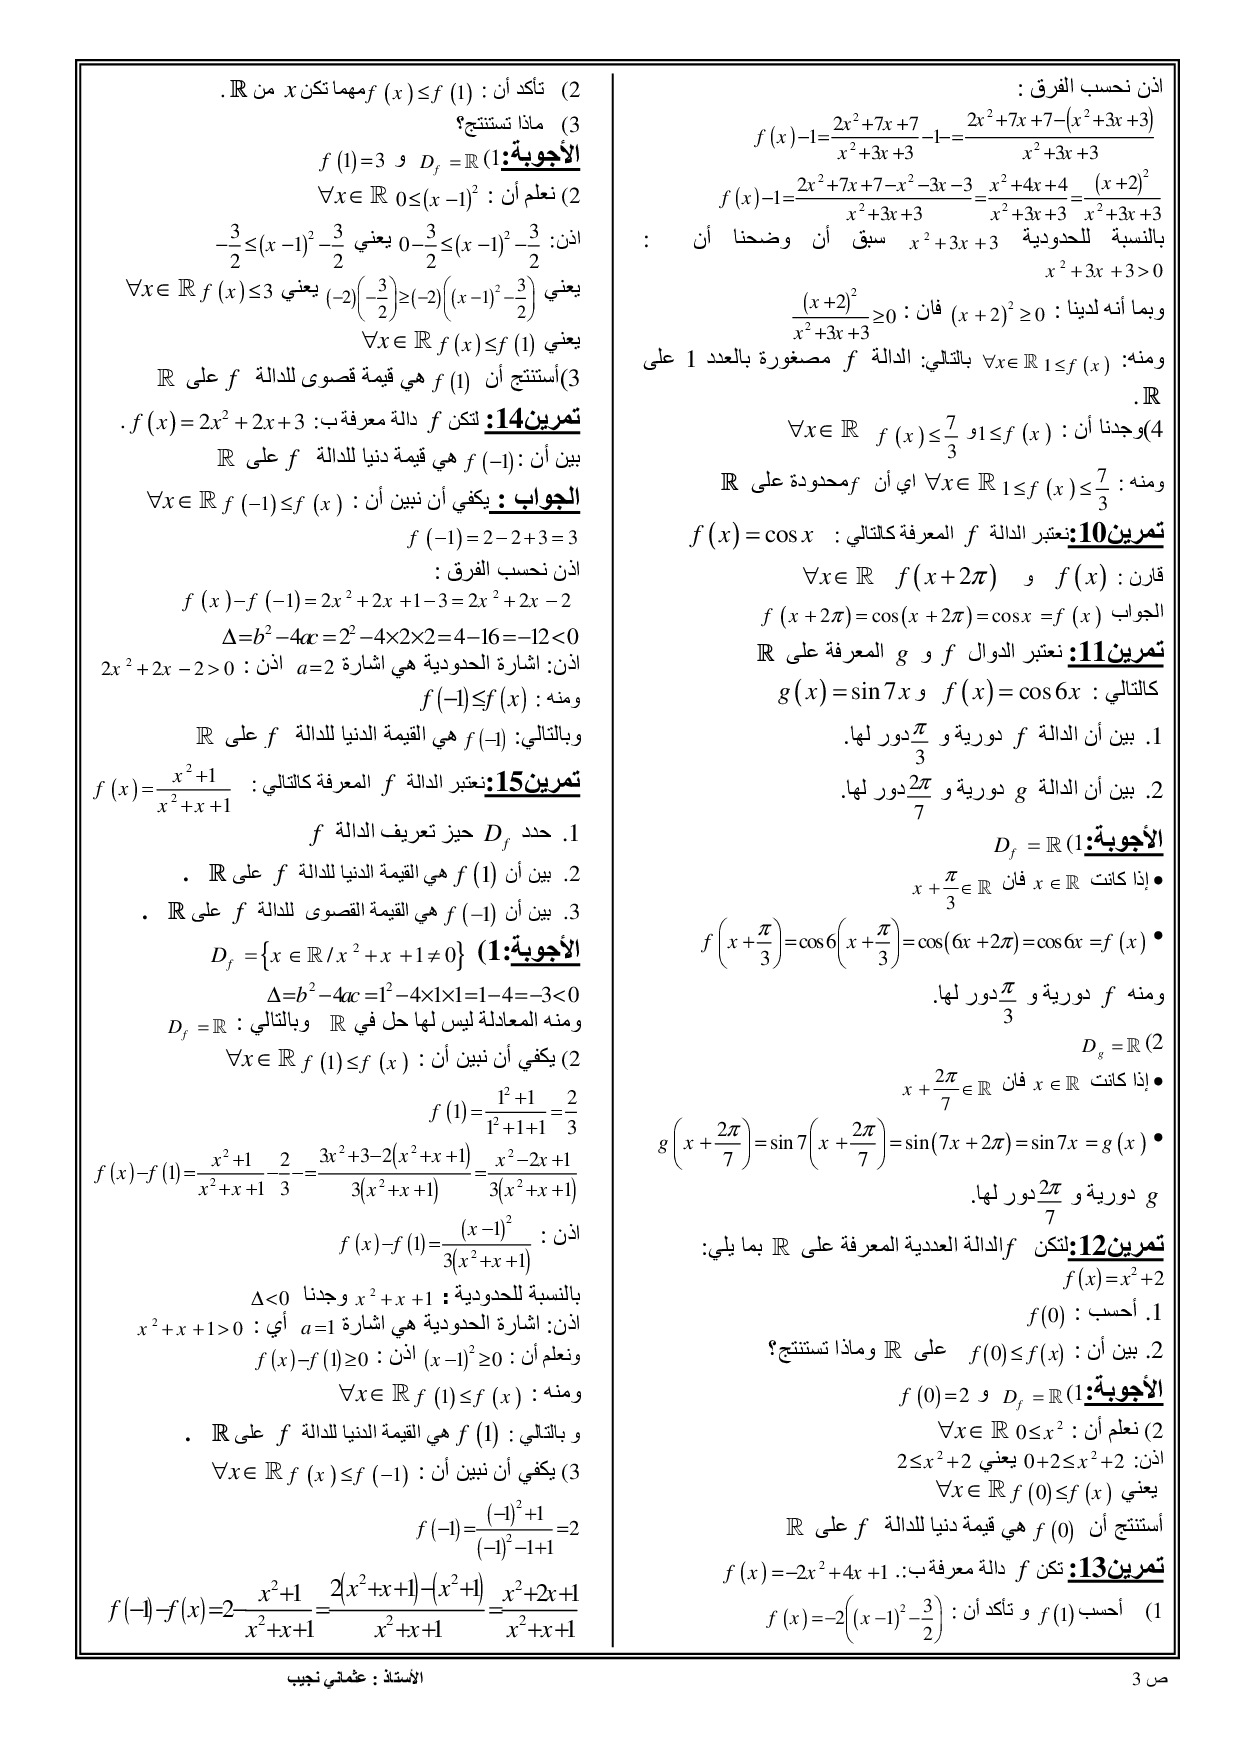 اذن نحسب الفرق :
f(x)-1=\frac{2x^2+7x+7}{x^2+3x+3}-1-=\frac{2x^2+7x+7-(x^2+3x+3)}{x^2+3x+3}
f(x)-1=\frac{2x^2+7x+7-x^2-3x-3}{x^2+3x+3}=\frac{x^2+4x+4}{x^2+3x+3}=\frac{(x+2)^2}{x^2+3x+3}
بالنسبة للحدودية x^2+3x+3 سبق أن وضحنا أن :
x^2+3x+3>0
وبما أنه لدينا : (x+2)^2≥0 فان : \frac{(x+2)^2}{x^2+3x+3}≥0
ومنه: ∀x∈ℝ 1≤f(x) بالتالي: الدالة f مصغورة بالعدد 1 على
ℝ.
4)وجدنا أن : 1≤f(x) و f(x)≤\frac{7}{3} ∀x∈ℝ
ومنه : 1≤f(x)≤\frac{7}{3} ∀x∈ℝ اي أن f محدودة على ℝ
تمرين10:نعتبر الدالة f المعرفة كالتالي : f(x)=cos x
قارن : f(x) و f(x+2π) ∀x∈ℝ
الجواب f(x+2π)=cos(x+2π)=cos x=f(x)
تمرين11: نعتبر الدوال f و g المعرفة على ℝ
كالتالي : f(x)=cos6x و g(x)=sin7x
1. بين أن الدالة f دورية و \frac{π}{3} دور لها.
2. بين أن الدالة g دورية و \frac{2π}{7} دور لها.
الأجوبة:1) D_f=ℝ
• إذا كانت x∈ℝ فان x+\frac{π}{3}∈ℝ
• f(x+\frac{π}{3})=cos6(x+\frac{π}{3})=cos(6x+2π)=cos6x=f(x)
ومنه f دورية و \frac{π}{3} دور لها.
2) D_g=ℝ
• إذا كانت x∈ℝ فان x+\frac{2π}{7}∈ℝ
• g(x+\frac{2π}{7})=sin7(x+\frac{2π}{7})=sin(7x+2π)=sin7x=g(x)
g دورية و \frac{2π}{7} دور لها.
تمرين12:لتكن f الدالة العددية المعرفة على ℝ بما يلي:
f(x)=x^2+2
1. أحسب : f(0)
2. بين أن : f(0)≤f(x) على ℝ وماذا تستنتج؟
الأجوبة:1) D_f=ℝ و f(0)=2
2) نعلم أن : 0≤x^2 ∀x∈ℝ
اذن: 0+2≤x^2+2 يعني 2≤x^2+2
يعني f(0)≤f(x) ∀x∈ℝ
أستنتج أن f(0) هي قيمة دنيا للدالة f على ℝ
تمرين13: تكن f دالة معرفة ب:. f(x)=-2x^2+4x+1
1) أحسب f(1) و تأكد أن : f(x)=-2((x-1)^2-\frac{3}{2})
2) تأكد أن : f(x)≤f(1) مهما تكن x من ℝ.
3) ماذا تستنتج؟
الأجوبة:1) D_f=ℝ و f(1)=3
2) نعلم أن : 0≤(x-1)^2 ∀x∈ℝ
اذن: 0-\frac{3}{2}≤(x-1)^2-\frac{3}{2} يعني -\frac{3}{2}≤(x-1)^2-\frac{3}{2}
يعني (-2)(-\frac{3}{2})≥(-2)((x-1)^2-\frac{3}{2}) يعني f(x)≤3 ∀x∈ℝ
يعني f(x)≤f(1) ∀x∈ℝ
3)أستنتج أن f(1) هي قيمة قصوى للدالة f على ℝ
تمرين14: لتكن f دالة معرفة ب: f(x)=2x^2+2x+3.
بين أن : f(-1) هي قيمة دنيا للدالة f على ℝ
الجواب : يكفي أن نبين أن : f(-1)≤f(x) ∀x∈ℝ
f(-1)=2-2+3=3
اذن نحسب الفرق :
f(x)-f(-1)=2x^2+2x+1-3=2x^2+2x-2
Δ=b^2-4ac=2^2-4×2×2=4-16=-12<0
اذن: اشارة الحدودية هي اشارة a=2 اذن : 2x^2+2x-2>0
ومنه : f(-1)≤f(x)
وبالتالي: f(-1) هي القيمة الدنيا للدالة f على ℝ
تمرين15:نعتبر الدالة f المعرفة كالتالي : f(x)=\frac{x^2+1}{x^2+x+1}
1. حدد D_f حيز تعريف الدالة f
2. بين أن f(1) هي القيمة الدنيا للدالة f على ℝ .
3. بين أن f(-1) هي القيمة القصوى للدالة f على ℝ .
الأجوبة:1) D_f={x∈ℝ/x^2+x+1≠0}
Δ=b^2-4ac=1^2-4×1×1=1-4=-3<0
ومنه المعادلة ليس لها حل في ℝ وبالتالي : D_f=ℝ
2) يكفي أن نبين أن : f(1)≤f(x) ∀x∈ℝ
f(1)=\frac{1^2+1}{1^2+1+1}=\frac{2}{3}
f(x)-f(1)=\frac{x^2+1}{x^2+x+1}-\frac{2}{3}-=\frac{3x^2+3-2(x^2+x+1)}{3(x^2+x+1)}=\frac{x^2-2x+1}{3(x^2+x+1)}
اذن : f(x)-f(1)=\frac{(x-1)^2}{3(x^2+x+1)}
بالنسبة للحدودية : x^2+x+1 وجدنا Δ<0
اذن: اشارة الحدودية هي اشارة a=1 أي : x^2+x+1>0
ونعلم أن : (x-1)^2≥0 اذن : f(x)-f(1)≥0
ومنه : f(1)≤f(x) ∀x∈ℝ
و بالتالي : f(1) هي القيمة الدنيا للدالة f على ℝ .
3) يكفي أن نبين أن : f(x)≤f(-1) ∀x∈ℝ
f(-1)=\frac{(-1)^2+1}{(-1)^2-1+1}=2
f(-1)-f(x)=2-\frac{x^2+1}{x^2+x+1}=\frac{2(x^2+x+1)-(x^2+1)}{x^2+x+1}=\frac{x^2+2x+1}{x^2+x+1}
ص 3
الأستاذ : عثماني نجيب